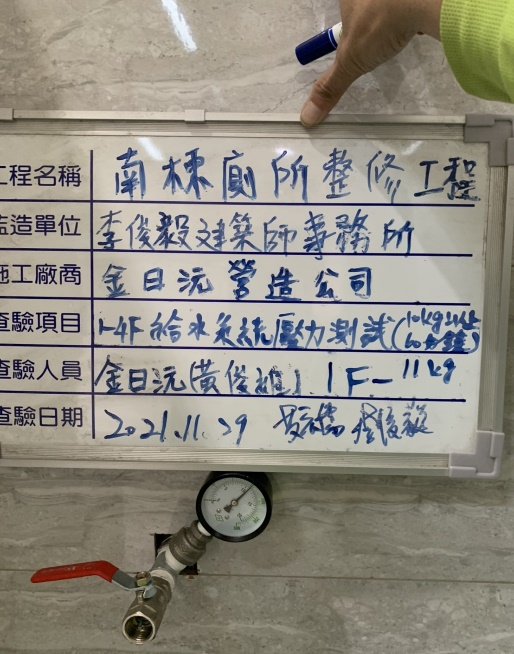 工程名稱 南棟廁所整修工程
監造單位 李俊毅建築師事務所
施工廠商 金日沅營造公司
查驗項目 1-4F給水系統壓力測試(10kg以上 60分鐘)
查驗人員 金日沅(黃俊雄) 1F-11kg
查驗日期 2021.11.29